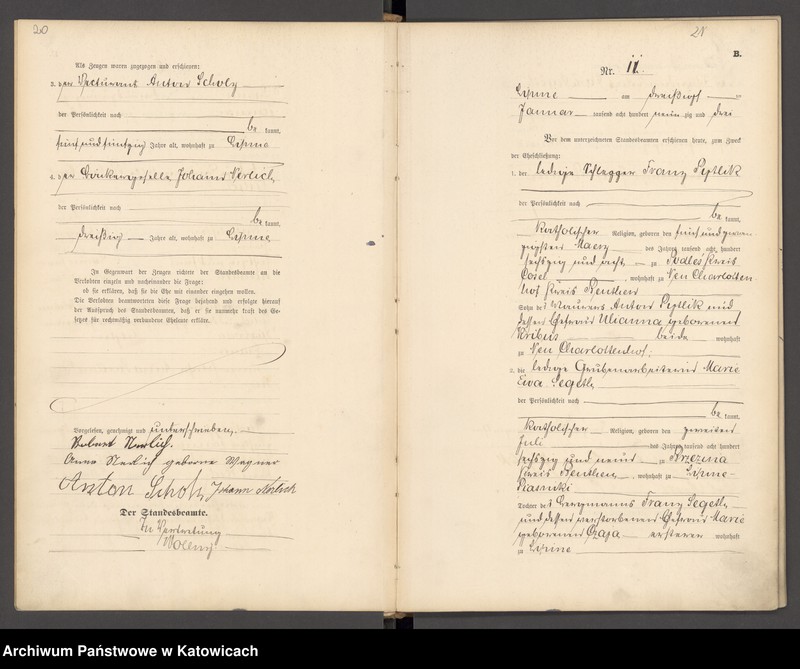 20
Als Zeugen waren zugezogen und erschienen:
3. der Anton Scholz
der Persönlichkeit nach
be kannt,
fünfundfünfzig Jahre alt, wohnhaft zu Lipine
4. der Johann Nerlich
der Persönlichkeit nach
be kannt,
dreißig Jahre alt, wohnhaft zu Lipine
In Gegenwart der Zeugen richtete der Standesbeamte an die
Verlobten einzeln und nacheinander die Frage:
ob sie erklären, daß sie die Ehe mit einander eingehen wollen.
Die Verlobten beantworteten diese Frage bejahend und erfolgte hierauf
der Ausspruch des Standesbeamten, daß er sie nunmehr kraft des Ge-
setzes für rechtmäßig verbundene Eheleute erkläre.
Vorgelesen, genehmigt und unterschrieben.
Robert Nerlich.
Anna Nerlich geborne Wagner
Anton Scholz Johann Nerlich
Der Standesbeamte.
In Vertretung
Woleny
21
B.
Nr. 11.
Lipine am dreißigsten
Januar tausend acht hundert neun zig und drei
Vor dem unterzeichneten Standesbeamten erschienen heute, zum Zweck
der Eheschließung:
1. der ledige Schlepper Franz Peptlik
der Persönlichkeit nach
be kannt,
katholischer Religion, geboren den fünfundzwan
zigsten Maerz des Jahres tausend acht hundert
sechszig und acht zu Podles Kreis
Cosel, wohnhaft zu Neu Charlotten
hof Kreis Beuthen
Sohn des Maurers Anton Peptlik und
dessen Ehefrau Ulianna geborenen
Kribus beide wohnhaft
zu Neu Charlottenhof;
2. die ledige Grubenarbeiterin Marie
Ewa Segeth
der Persönlichkeit nach
be kannt,
katholischer Religion, geboren den zweiten
Juli des Jahres tausend acht hundert
sechszig und neun zu Brzezina
Kreis Beuthen, wohnhaft zu Lipine-
Piasniki
Tochter des Bergmanns Franz Segeth
und dessen verstorbenen Ehefrau Marie
geborenen Czaja ersterer wohnhaft
zu Lipine
Archiwum Państwowe w Katowicach